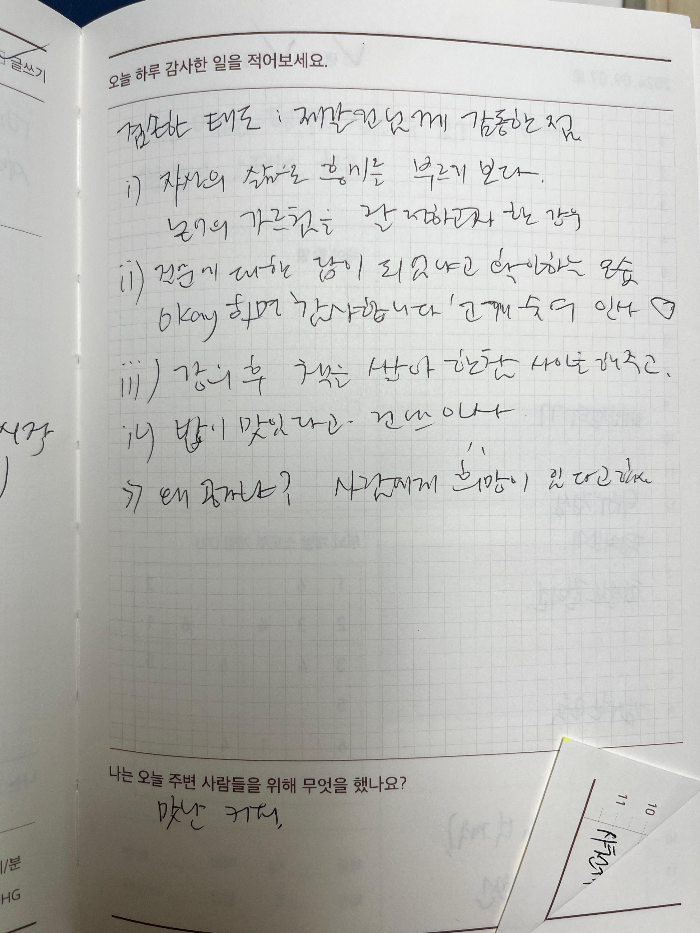 글쓰기
오늘 하루 감사한 일을 적어보세요.
겸손한 태도 : 제갈건님께 감동한 점
i) 자신의 삶으로 흥미를 부르기 보다.
논어의 가르침을 잘 전하고자 한 강의
ii) 질문에 대한 답이 되었냐고 확인하는 모습
Okay 하면 '감사합니다' 고개 숙여 인사 ♡
iii) 강의 후 책을 쌓아 한참 사인을 해주고.
iv) 밥이 맛있다고. 건넨 인사
⇒ 왜 공자냐? 사람에게 희망이 있다고 해서
나는 오늘 주변 사람들을 위해 무엇을 했나요?
맛난 커피.
10
11
/분
HG